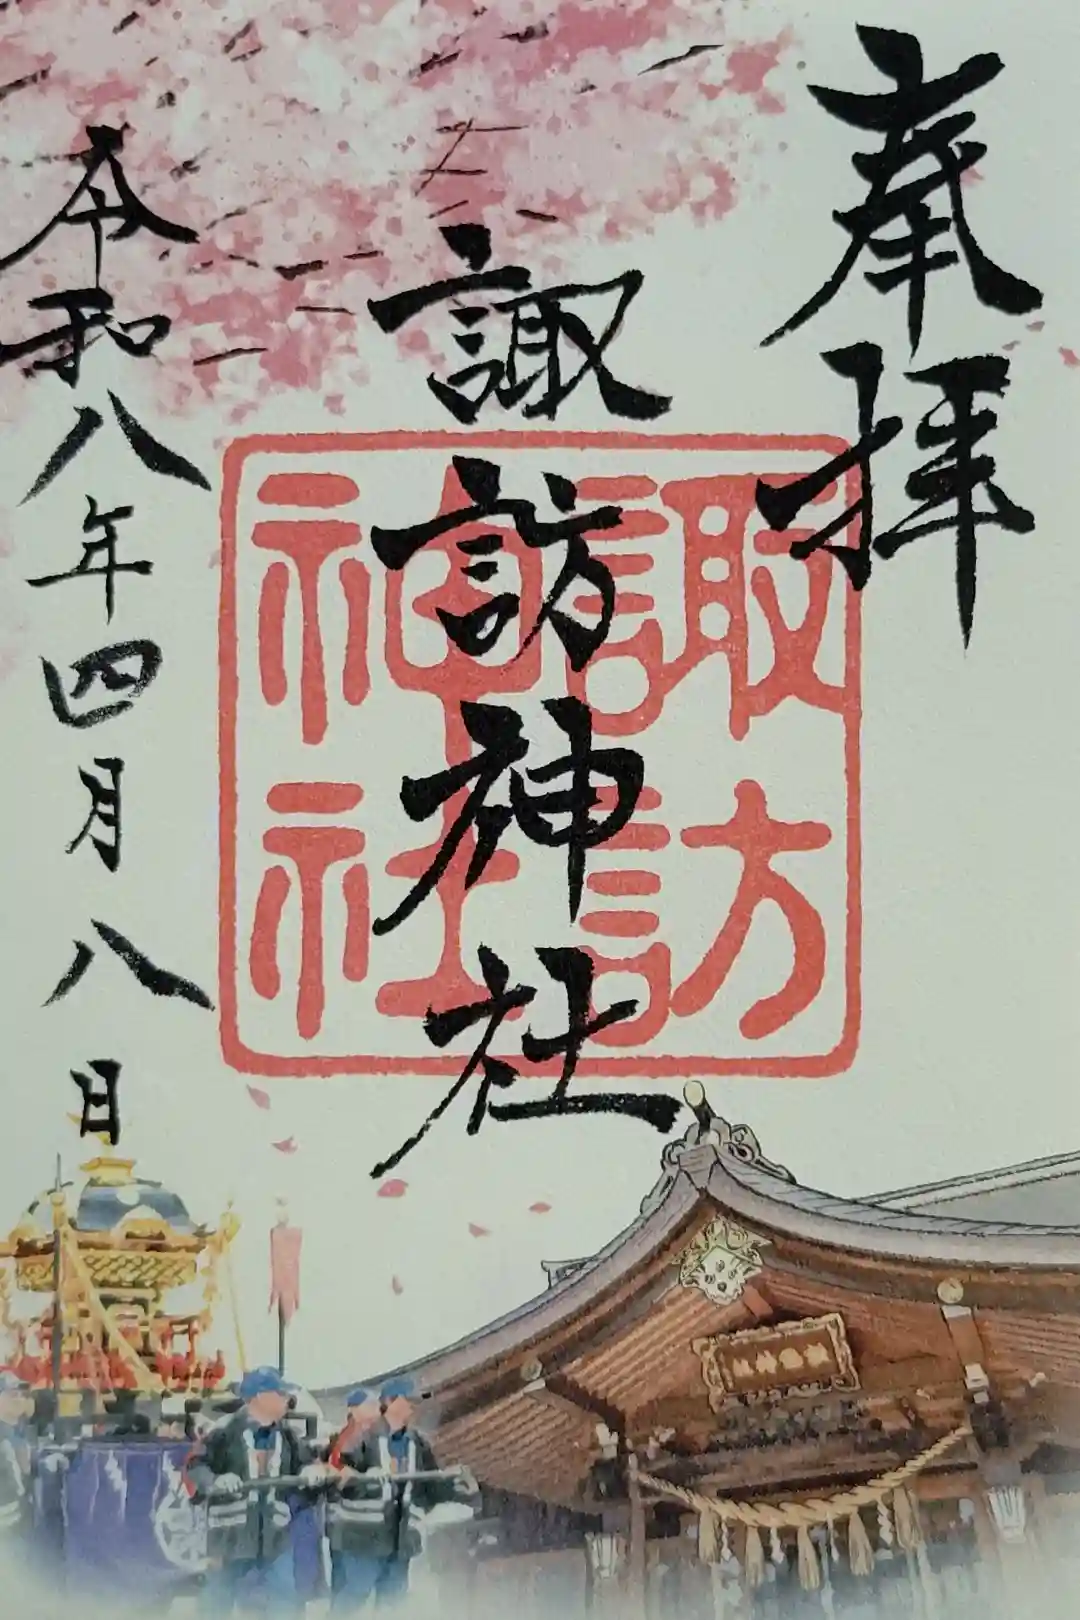 奉拝
諏訪神社
諏訪
神社
令和八年四月八日